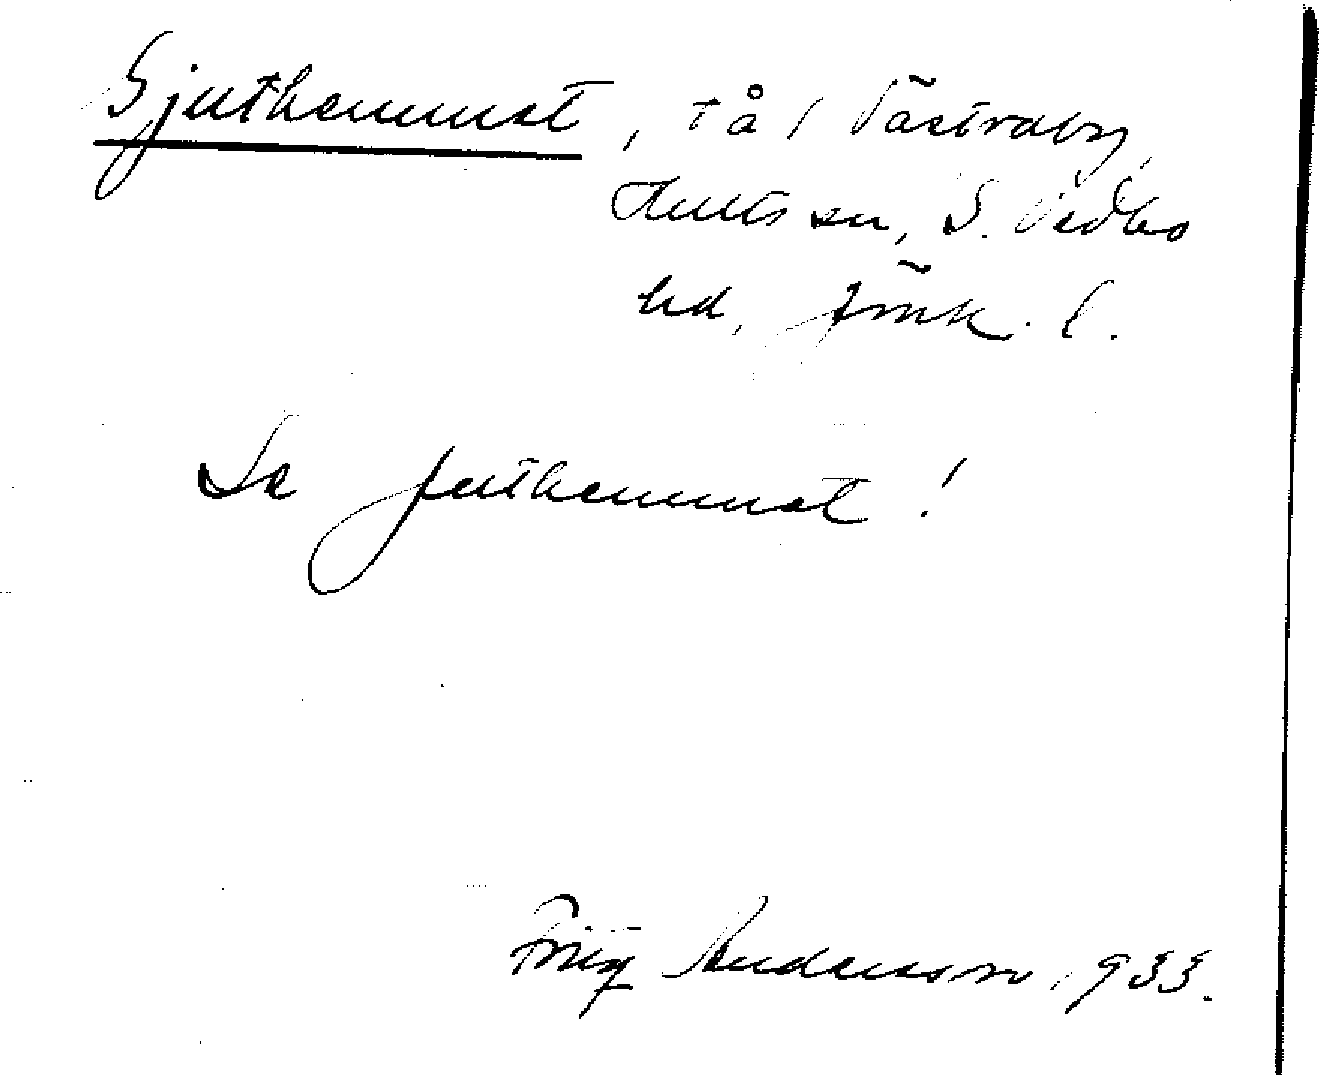 Gjuthemmet, tå i Västraby,
Hults sn, S. Vedbo
hd, Jönk. l.
Se Juthemmet!
Fritz Andersson 1933.